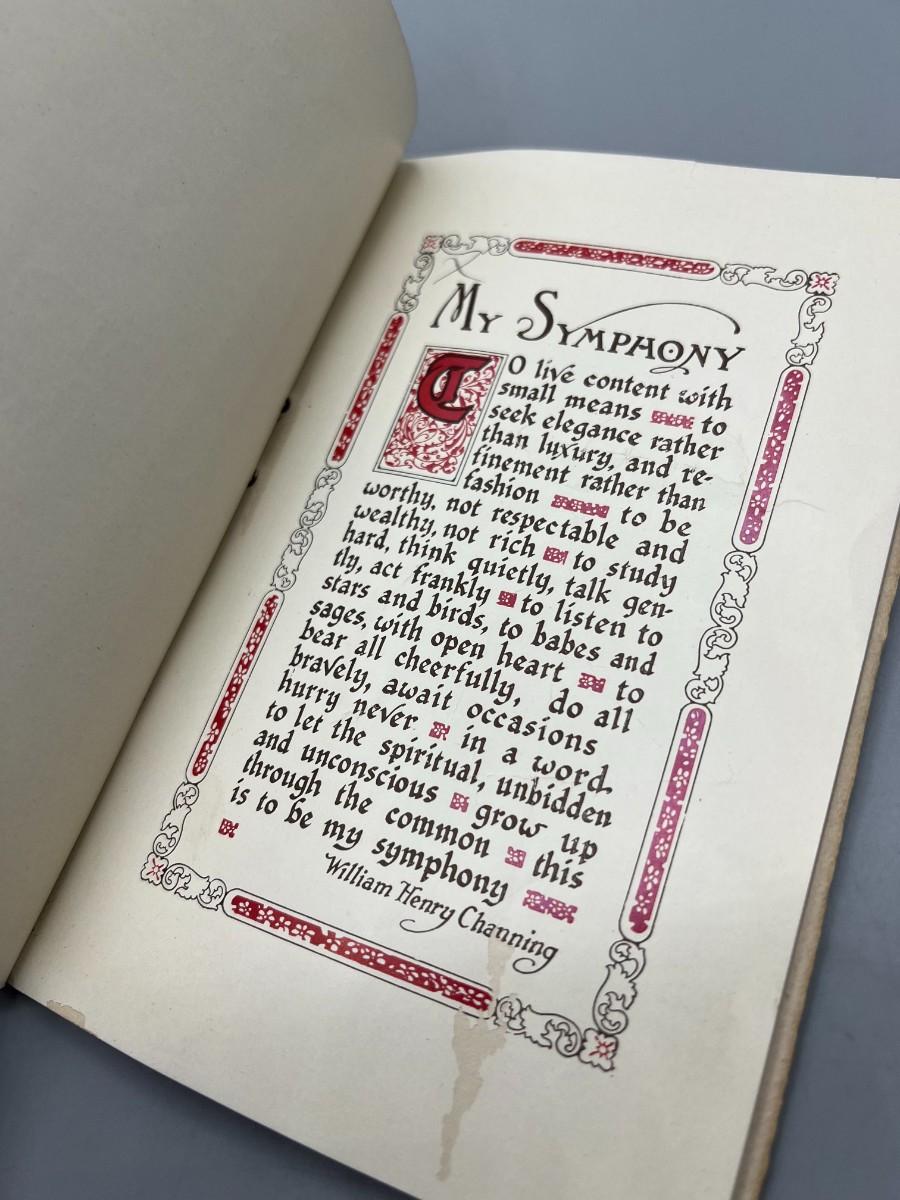 My Symphony
TO live content with
small means to
seek elegance rather
than luxury, and re-
finement rather than
fashion to be
worthy, not respectable and
wealthy, not rich to study
hard, think quietly, talk gen-
tly, act frankly to listen to
stars and birds, to babes and
sages, with open heart to
bear all cheerfully, do all
bravely, await occasions
hurry never in a word.
to let the spiritual, unbidden
and unconscious grow up
through the common this
is to be my symphony
William Henry Channing